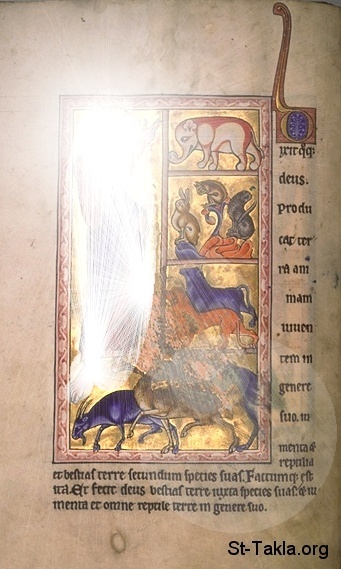 ixit qq;
deus.
produ
cat ter
ra am
mam
viven
tem in
genere
suo. iu
menta &
reptilia
et bestias terre secundum species suas. Factumq; est
ita. Et fecit deus bestias terre iuxta species suas. & iu
menta et omne reptile terre in genere suo.
St-Takla.org